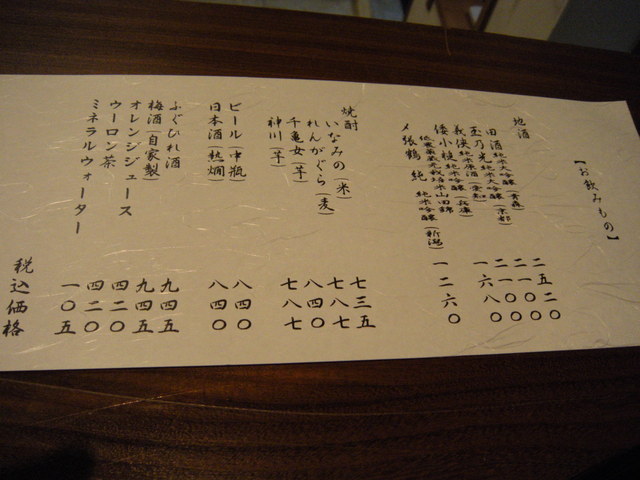 【お飲みもの】
地酒
田酒 純米大吟醸(青森) 二五二〇
玉乃光 純米大吟醸(京都) 二一〇〇
義侠 純米原酒(愛知) 二一〇〇
倭小槌 純米吟醸(兵庫) 一六八〇
山田錦
〆張鶴 純 純米吟醸(新潟) 一二六〇
焼酎
いなみの(米) 七三五
れんがぐら(麦) 七八七
千亀女(芋) 八四〇
神川(芋) 七八七
ビール(中瓶) 八四〇
日本酒(熱燗) 八四〇
ふぐひれ酒 九四五
梅酒(自家製) 九四五
オレンジジュース 四二〇
ウーロン茶 四二〇
ミネラルウォーター 一〇五
税込価格